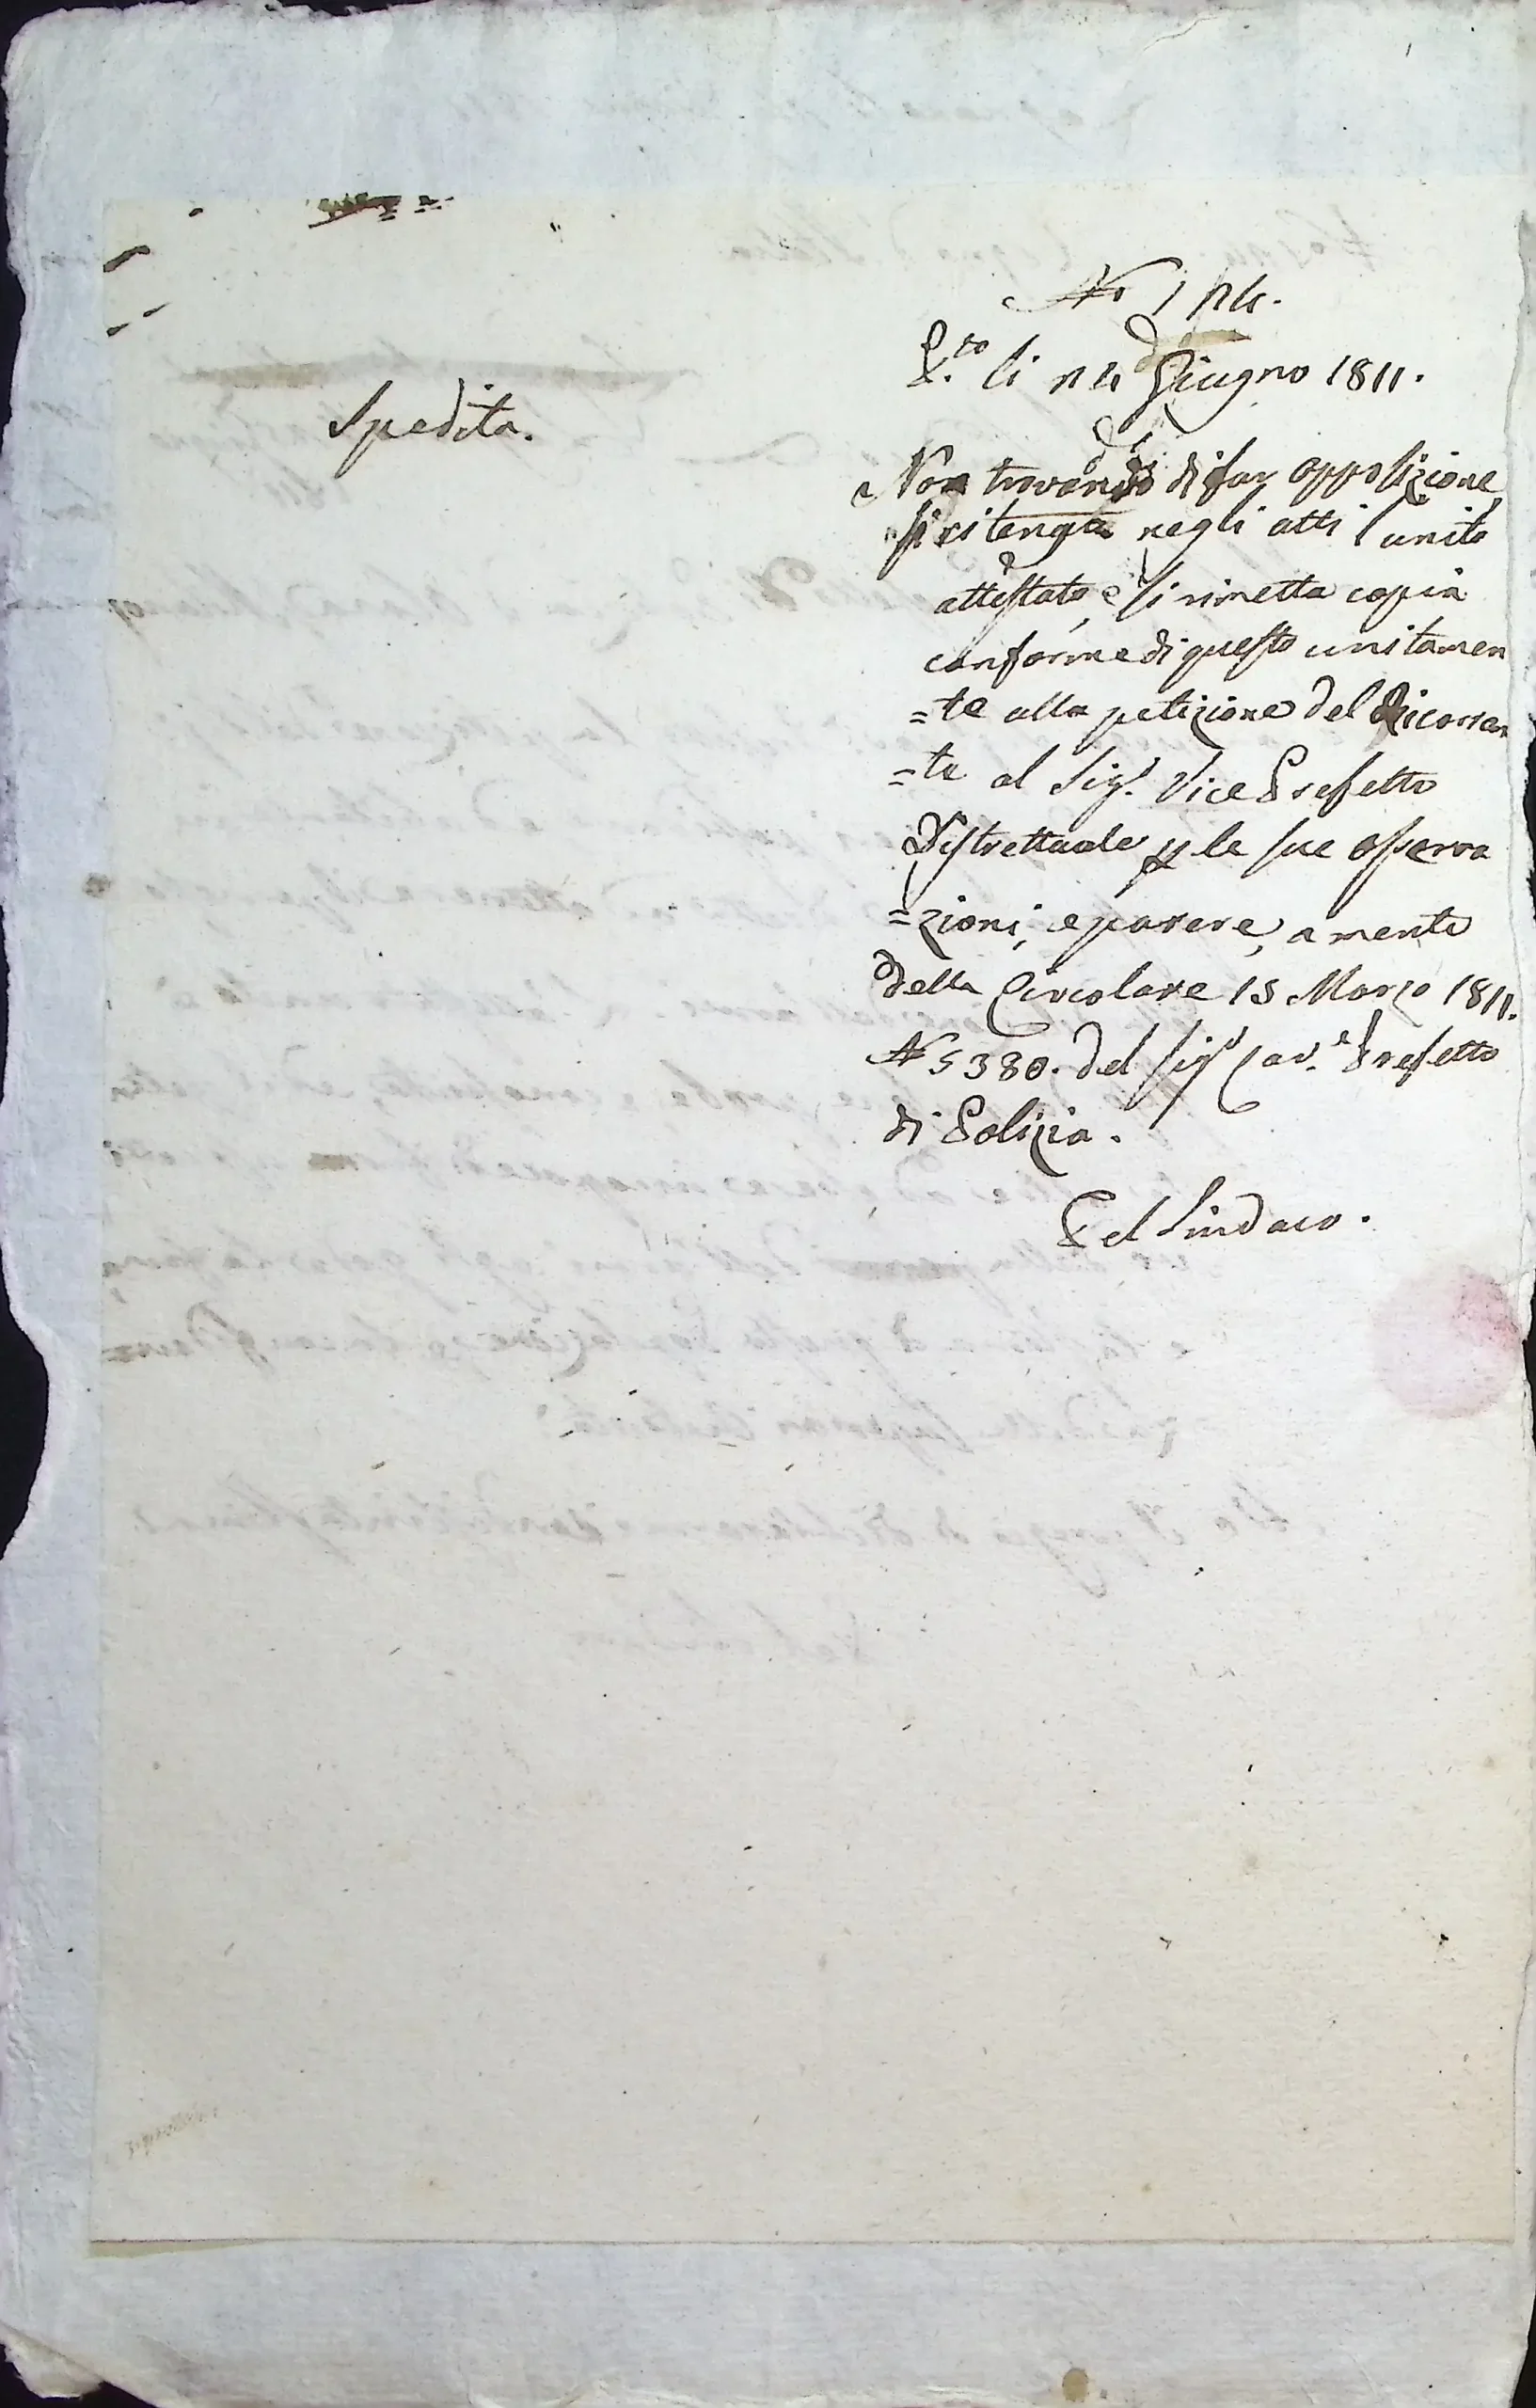 Spedita.
N.
P.to li 24 Giugno 1811.
Non trovando di far opposizione
si ritenga negli atti l'unito
attestato, e si rimetta copia
conforme di questo unitamen
=te alla petizione del Ricorren
=te al Sig.r Vice Prefetto
Distrettuale per le sue osserva
=zioni, e parere, a mente
della Circolare 15 Marzo 1811.
N 5380. del Sig.r Cav.e Prefetto
di Polizia.
Pel Sindaco.